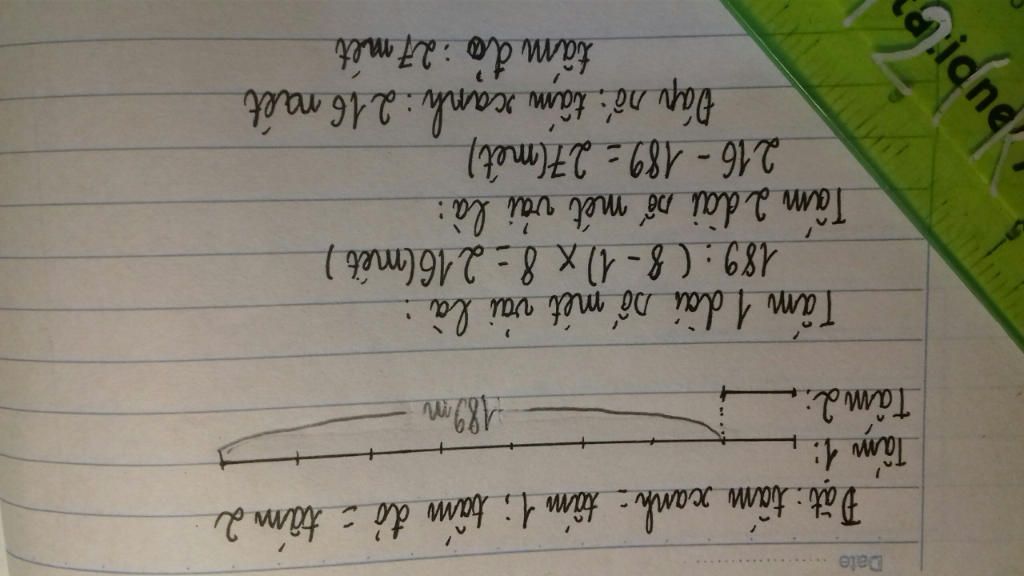 Date
Đặt: tấm xanh = tấm 1; tấm đỏ = tấm 2
Tấm 1:
189 m
Tấm 2:
Tấm 1 dài số mét vải là:
189 : ( 8 - 1) x 8 = 216 (mét)
Tấm 2 dài số mét vải là:
216 - 189 = 27 (mét)
Đáp số: tấm xanh: 216 mét
tấm đỏ: 27 mét